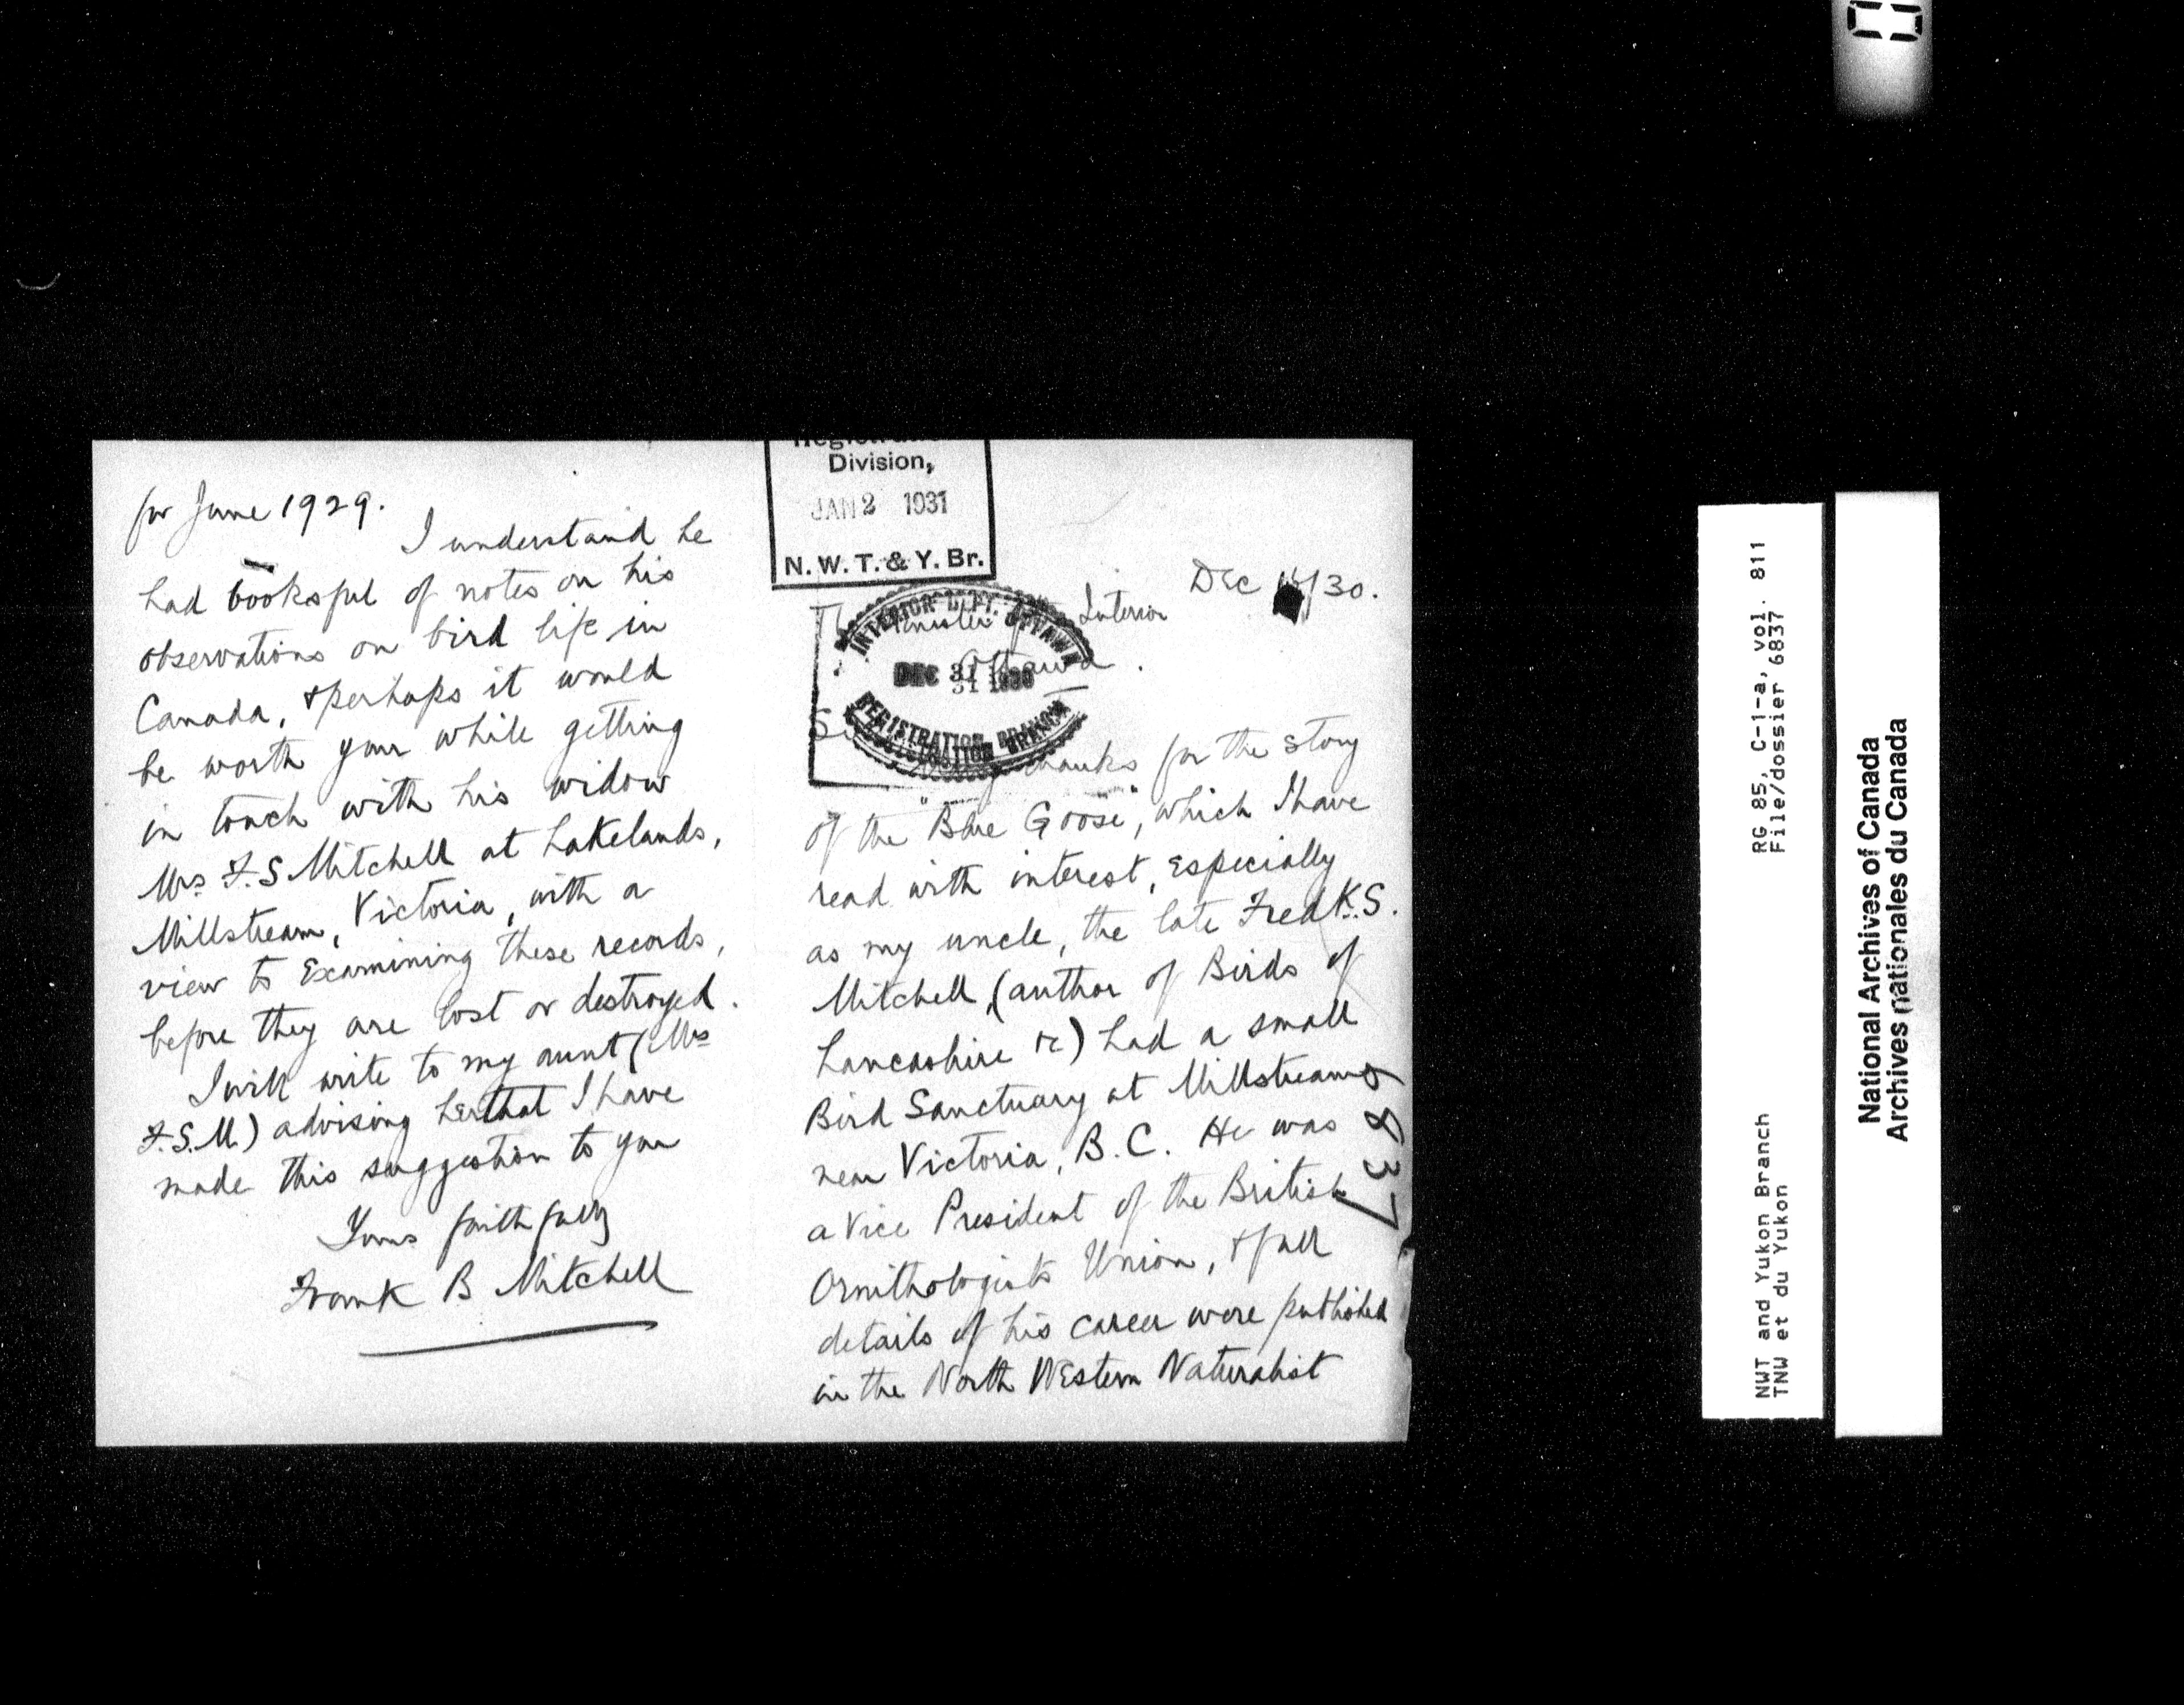 Division,
JAN 2 1931
N. W. T. & Y. Br.
Dec /30.
Interior
Ottawa.
INTERIOR DEPT. OTTAWA
DEC 31 1930
REGISTRATION BRANCH
thanks for the story
of the "Blue Goose", which I have
read with interest, especially
as my uncle, the late Fredk. S.
Mitchell, (author of Birds of
Lancashire &c) had a small
Bird Sanctuary at Millstream
near Victoria, B. C. He was
a Vice President of the British
Ornithologists Union, & full
details of his career were published
in the North Western Naturalist
6837
for June 1929.
I understand he
had booksful of notes on his
observations on bird life in
Canada, & perhaps it would
be worth your while getting
in touch with his widow
Mrs F. S Mitchell at Lakelands,
Millstream, Victoria, with a
view to Examining these records,
before they are lost or destroyed.
I will write to my aunt (Mrs
F.S.M.) advising her that I have
made this suggestion to you
Yours faithfully
Frank B Mitchell
RG 85, C-1-a, vol. 811
File/dossier 6837
NWT and Yukon Branch
TNW et du Yukon
National Archives of Canada
Archives nationales du Canada